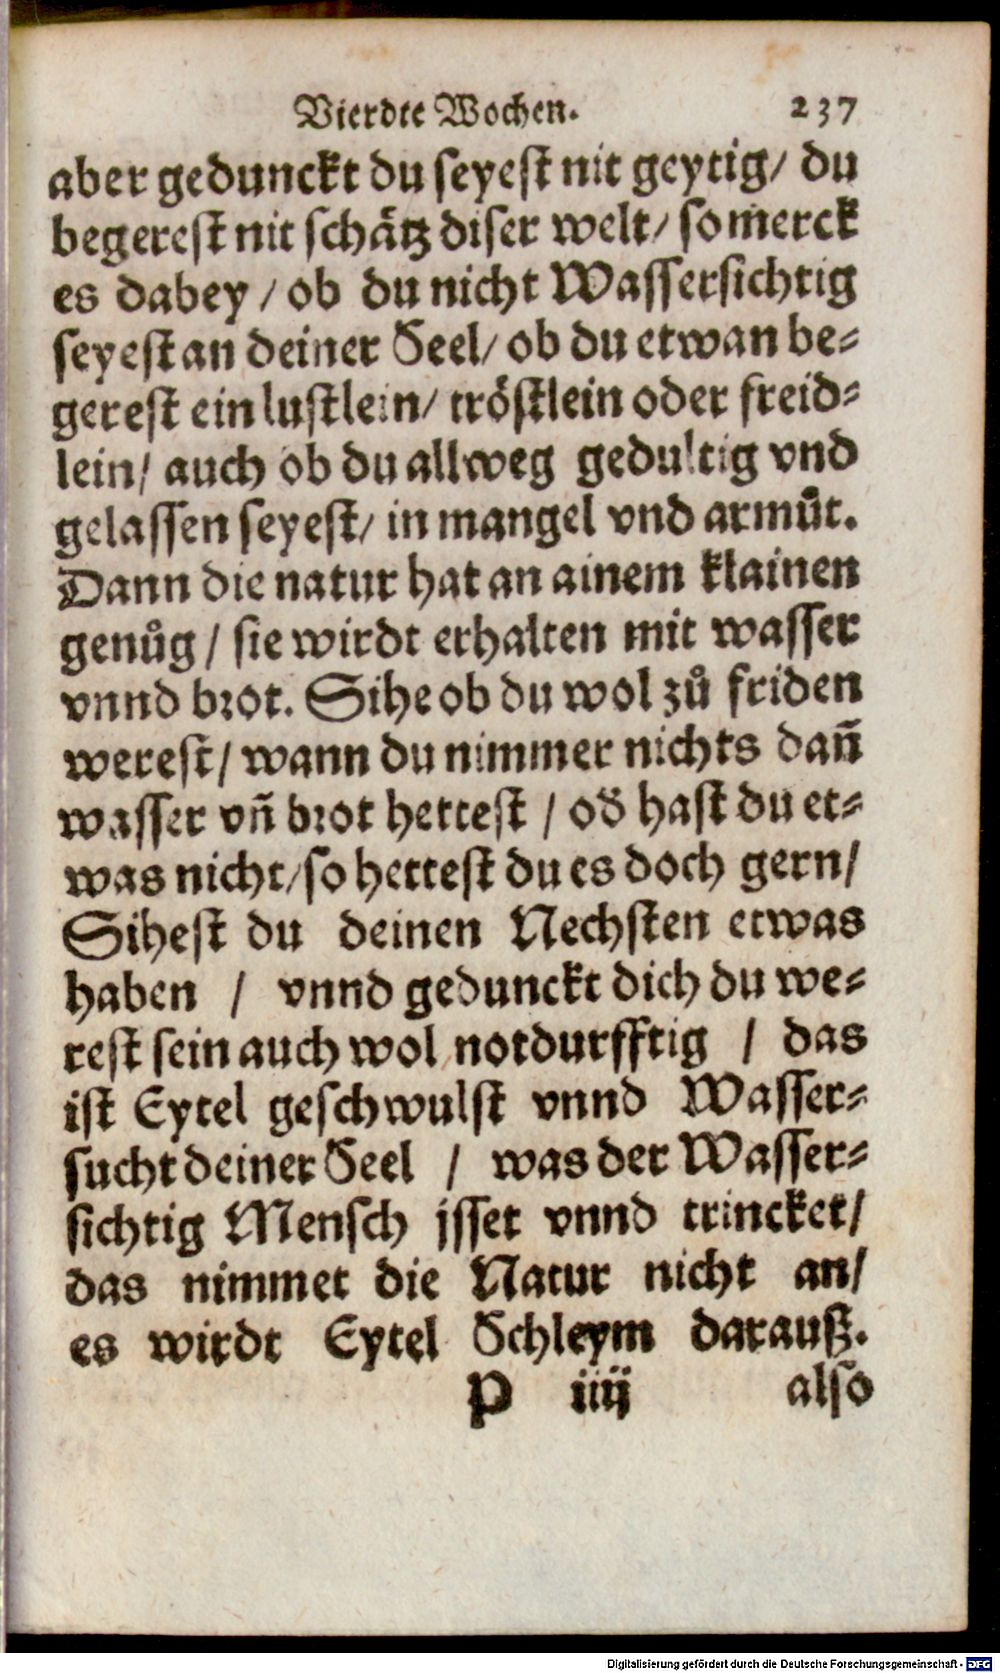 Vierdte Wochen. 237
aber gedunckt du seyest nit geytig/ du
begerest nit schätz diser welt/ so merck
es dabey / ob du nicht Wassersichtig
seyest an deiner Seel/ ob du etwan be-
gerest ein lustlein/ tröstlein oder freid-
lein/ auch ob du allweg gedultig vnd
gelassen seyest/ in mangel vnd armůt.
Dann die natur hat an ainem klainen
genůg / sie wirdt erhalten mit wasser
vnnd brot. Sihe ob du wol zů friden
werest/ wann du nimmer nichts dañ
wasser vñ brot hettest / oð hast du et-
was nicht/ so hettest du es doch gern/
Sihest du deinen Nechsten etwas
haben / vnnd gedunckt dich du we-
rest sein auch wol notdurfftig / das
ist Eytel geschwulst vnnd Wasser-
sucht deiner Seel / was der Wasser-
sichtig Mensch jsset vnnd trincket/
das nimmet die Natur nicht an/
es wirdt Eytel Schleym darauß.
P iiij also
Digitalisierung gefördert durch die Deutsche Forschungsgemeinschaft - DFG